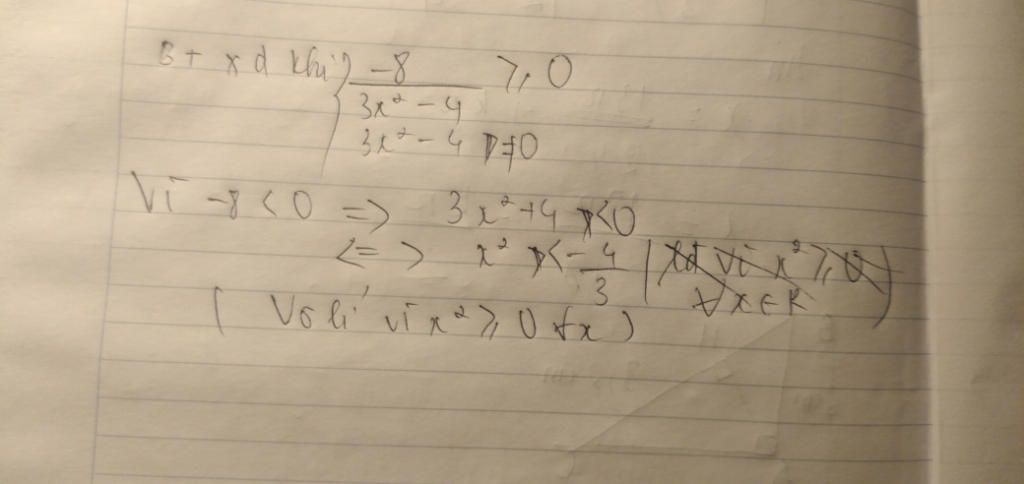 Bt xđ khi { -8/(3x² - 4) ≥ 0
3x² - 4 ≠ 0
Vì -8 < 0 => 3x² + 4 < 0
<=> x² < -4/3
( Vô lí vì x² ≥ 0 ∀x )